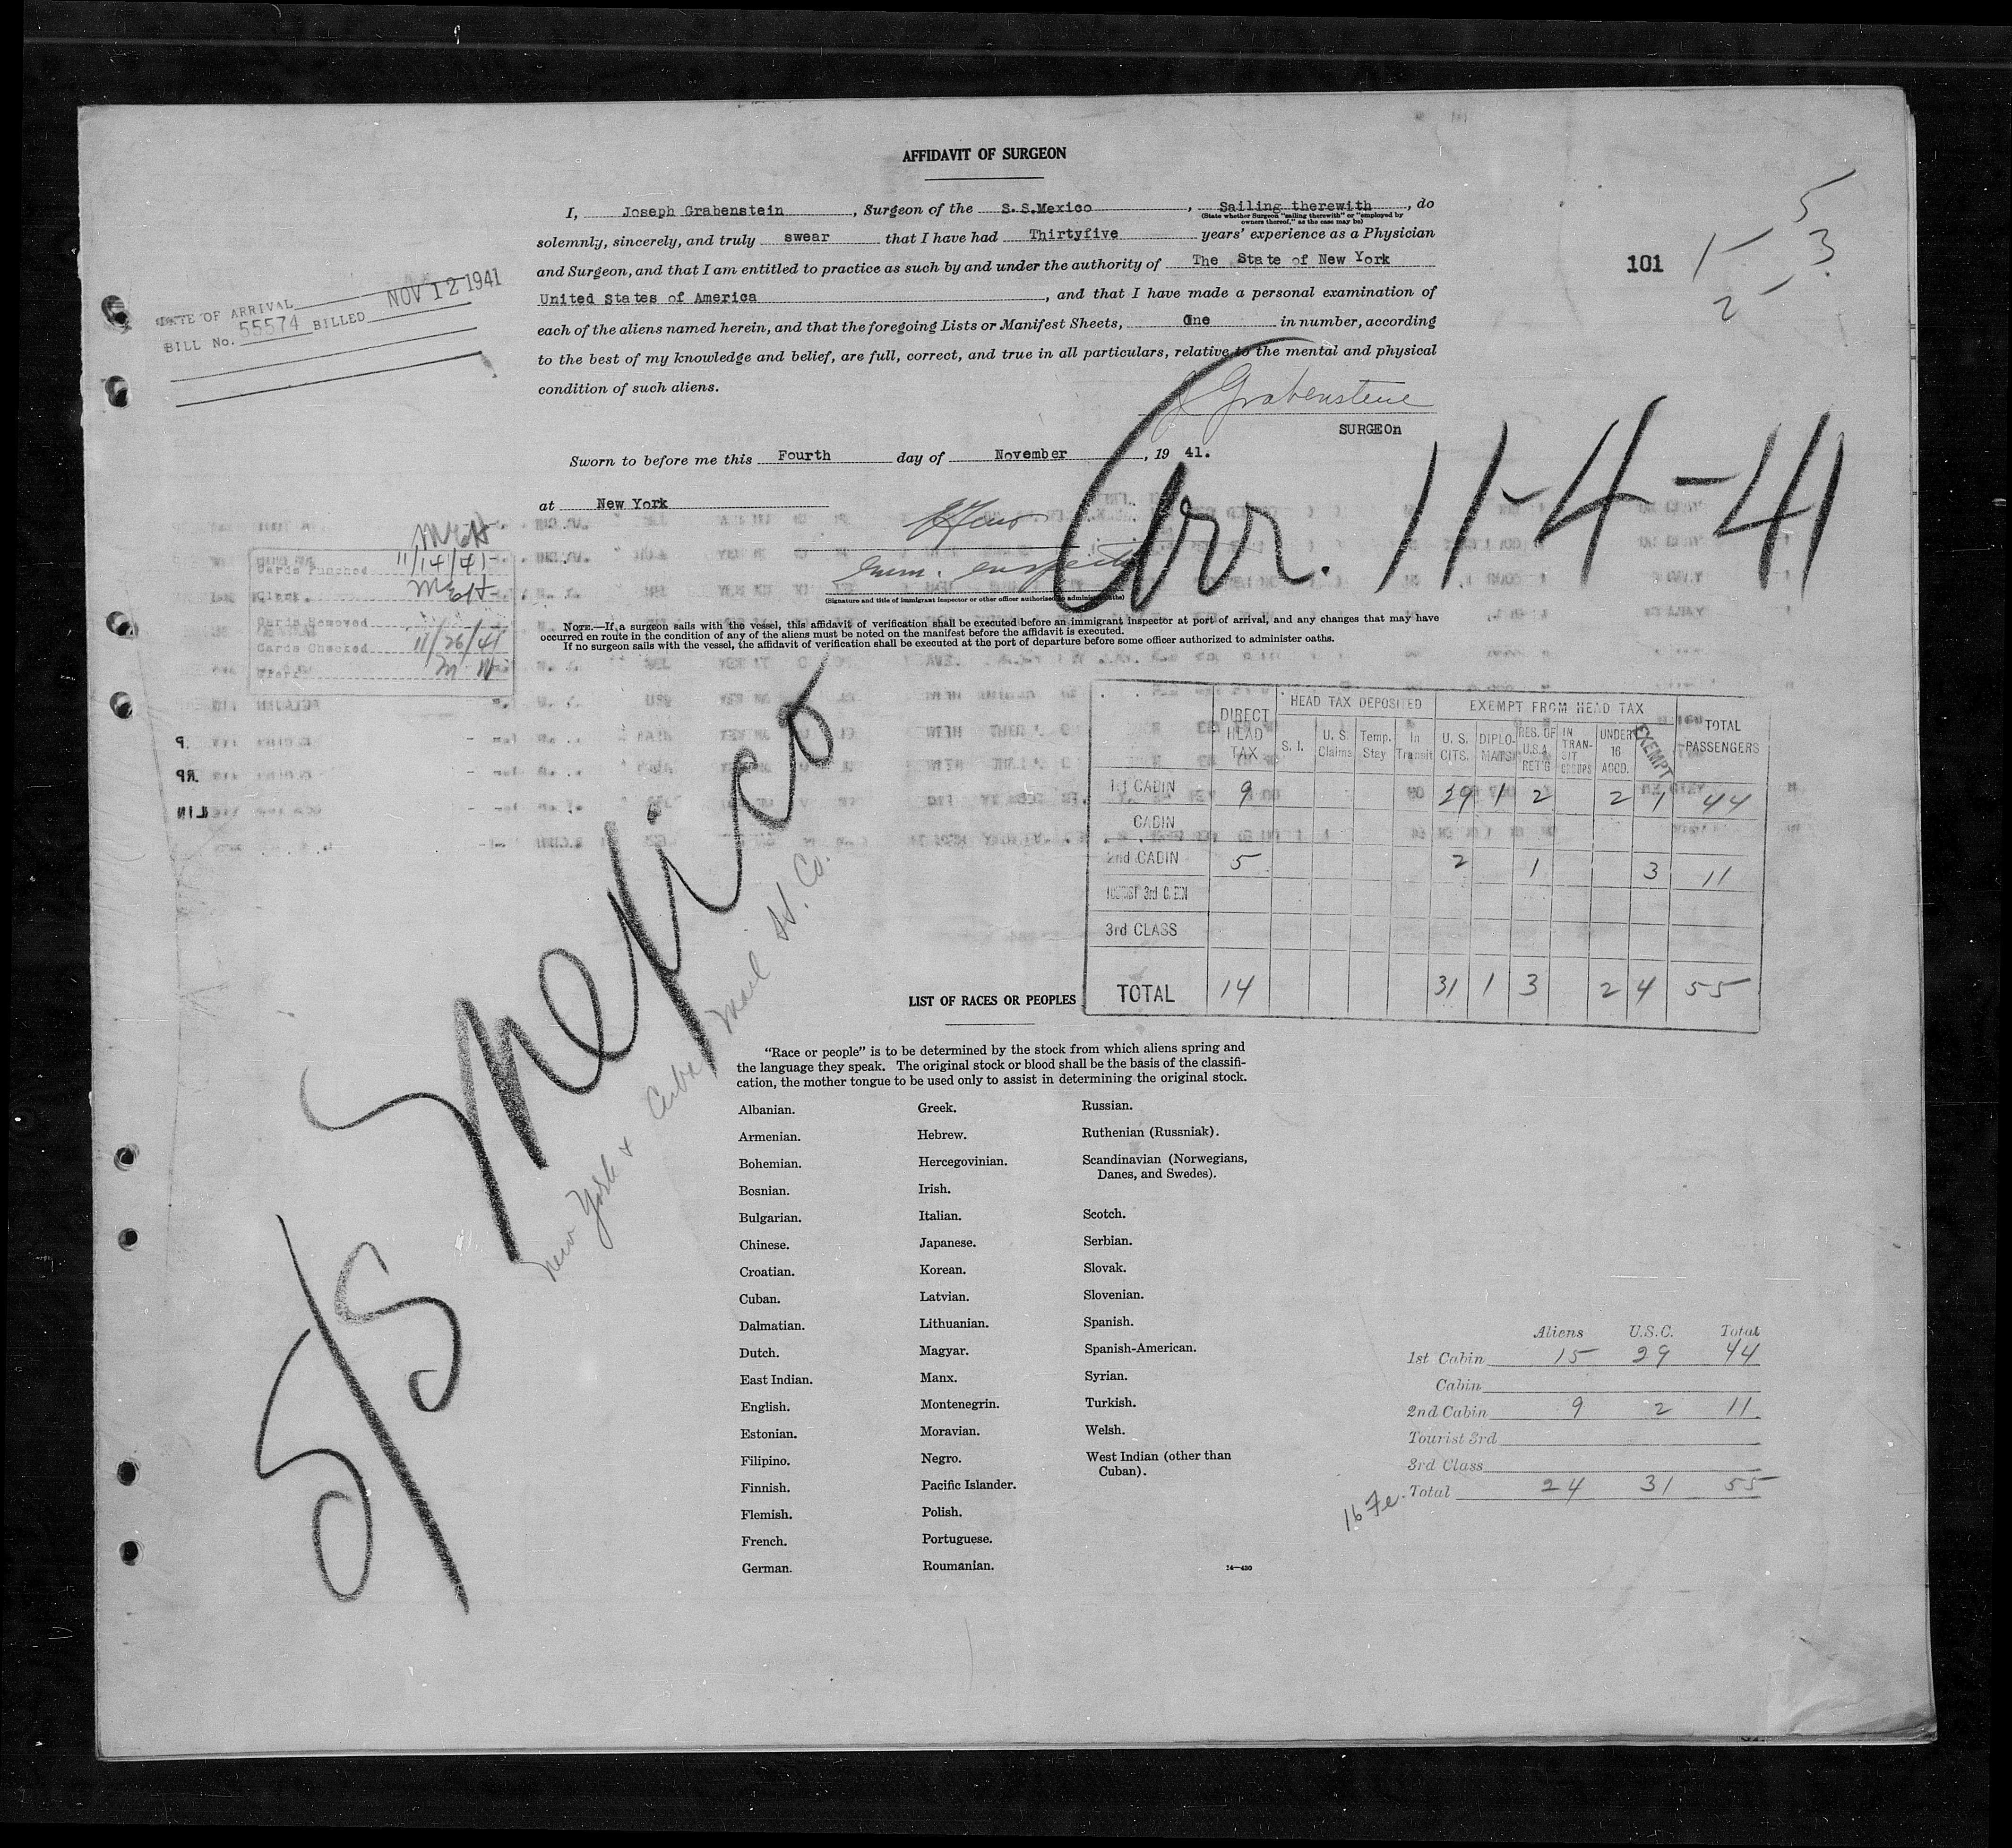 AFFIDAVIT OF SURGEON
I, Joseph Grabenstein, Surgeon of the S.S.Mexico, Sailing therewith, do
(State whether Surgeon "sailing therewith" or "employed by
owners thereof," as the case may be)
solemnly, sincerely, and truly swear that I have had Thirtyfive years' experience as a Physician
and Surgeon, and that I am entitled to practice as such by and under the authority of The State of New York
United States of America, and that I have made a personal examination of
each of the aliens named herein, and that the foregoing Lists or Manifest Sheets, One in number, according
to the best of my knowledge and belief, are full, correct, and true in all particulars, relative to the mental and physical
condition of such aliens.
J Grabenstein
SURGEOn
Sworn to before me this Fourth day of November, 19 41.
at New York
Imm. Inspector
(Signature and title of immigrant inspector or other officer authorized to administer oaths)
NOTE.—If a surgeon sails with the vessel, this affidavit of verification shall be executed before an immigrant inspector at port of arrival, and any changes that may have
occurred en route in the condition of any of the aliens must be noted on the manifest before the affidavit is executed.
If no surgeon sails with the vessel, the affidavit of verification shall be executed at the port of departure before some officer authorized to administer oaths.
101
1 - 5
3
2
DATE OF ARRIVAL
BILL No. 55574 BILLED NOV 12 1941
Arr. 11-4-41
McH
Cards Punched 11/14/41
Clerk. McH
Cards Removed
Cards Checked 11/26/41
Clerk
S/S Mexico
New York & Cuba Mail SS. Co.
DIRECT HEAD TAX
HEAD TAX DEPOSITED
S. I. U. S. Claims Temp. Stay In Transit
EXEMPT FROM HEAD TAX
U. S. CITS. DIPLO-MATS RES. OF U.S.A. RET'G IN TRAN-SIT GROUPS UNDER 16 ACCD. EXEMPT
TOTAL PASSENGERS
1st CABIN 9 29 1 2 2 1 44
CABIN
2nd CABIN 5 2 1 3 11
TOURIST 3rd CABIN
3rd CLASS
TOTAL 14 31 1 3 2 4 55
LIST OF RACES OR PEOPLES
"Race or people" is to be determined by the stock from which aliens spring and
the language they speak. The original stock or blood shall be the basis of the classifi-
cation, the mother tongue to be used only to assist in determining the original stock.
Albanian.
Armenian.
Bohemian.
Bosnian.
Bulgarian.
Chinese.
Croatian.
Cuban.
Dalmatian.
Dutch.
East Indian.
English.
Estonian.
Filipino.
Finnish.
Flemish.
French.
German.
Greek.
Hebrew.
Hercegovinian.
Irish.
Italian.
Japanese.
Korean.
Latvian.
Lithuanian.
Magyar.
Manx.
Montenegrin.
Moravian.
Negro.
Pacific Islander.
Polish.
Portuguese.
Roumanian.
Russian.
Ruthenian (Russniak).
Scandinavian (Norwegians,
Danes, and Swedes).
Scotch.
Serbian.
Slovak.
Slovenian.
Spanish.
Spanish-American.
Syrian.
Turkish.
Welsh.
West Indian (other than
Cuban).
Aliens U.S.C. Total
1st Cabin 15 29 44
Cabin
2nd Cabin 9 2 11
Tourist 3rd
3rd Class
Total 24 31 55
16 Fe.